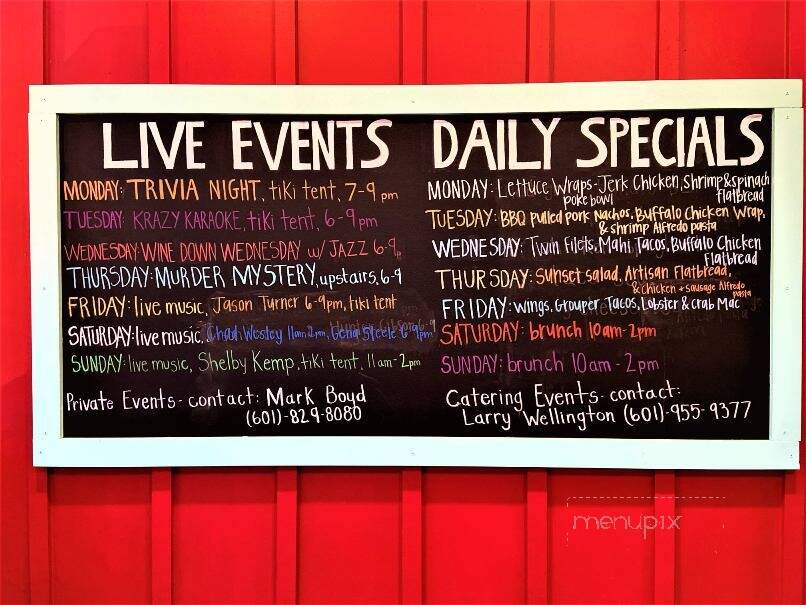 LIVE EVENTS
MONDAY: TRIVIA NIGHT, tiki tent, 7-9 pm
TUESDAY: KRAZY KARAOKE, tiki tent, 6-9pm
WEDNESDAY: WINE DOWN WEDNESDAY w/ JAZZ 6-9p
THURSDAY: MURDER MYSTERY, upstairs, 6-9
FRIDAY: live music, Jason Turner 6-9pm, tiki tent
SATURDAY: live music, Chad Wesley 11am-2pm, Gena Steele 6-9pm
SUNDAY: live music, Shelby Kemp, tiki tent, 11am-2pm
Private Events - contact: Mark Boyd
(601)-829-8080
DAILY SPECIALS
MONDAY: Lettuce Wraps-Jerk Chicken, Shrimp & spinach
poke bowl flatbread
TUESDAY: BBQ pulled pork Nachos, Buffalo Chicken Wrap,
& shrimp Alfredo pasta
WEDNESDAY: Twin Filets, Mahi Tacos, Buffalo Chicken
Flatbread
THURSDAY: Sunset salad, Artisan Flatbread,
& chicken + sausage Alfredo
pasta
FRIDAY: Wings, Grouper Tacos, Lobster & Crab Mac
SATURDAY: brunch 10am-2pm
SUNDAY: brunch 10am-2pm
Catering Events - contact:
Larry Wellington (601)-955-9377
menupix